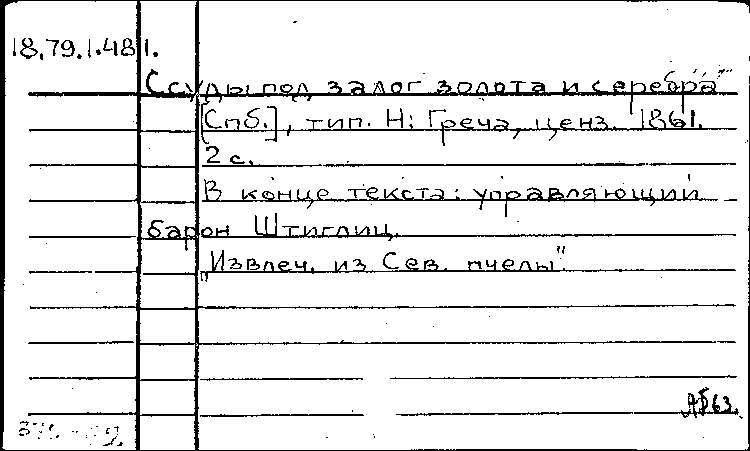 18.79.1.481.
Ссуды под залог золота и серебра"
[Спб.], тип. Н. Греча, ценз. 1861.
2 с.
В конце текста: управляющий
барон Штиглиц.
"Извлеч. из Сев. пчелы".